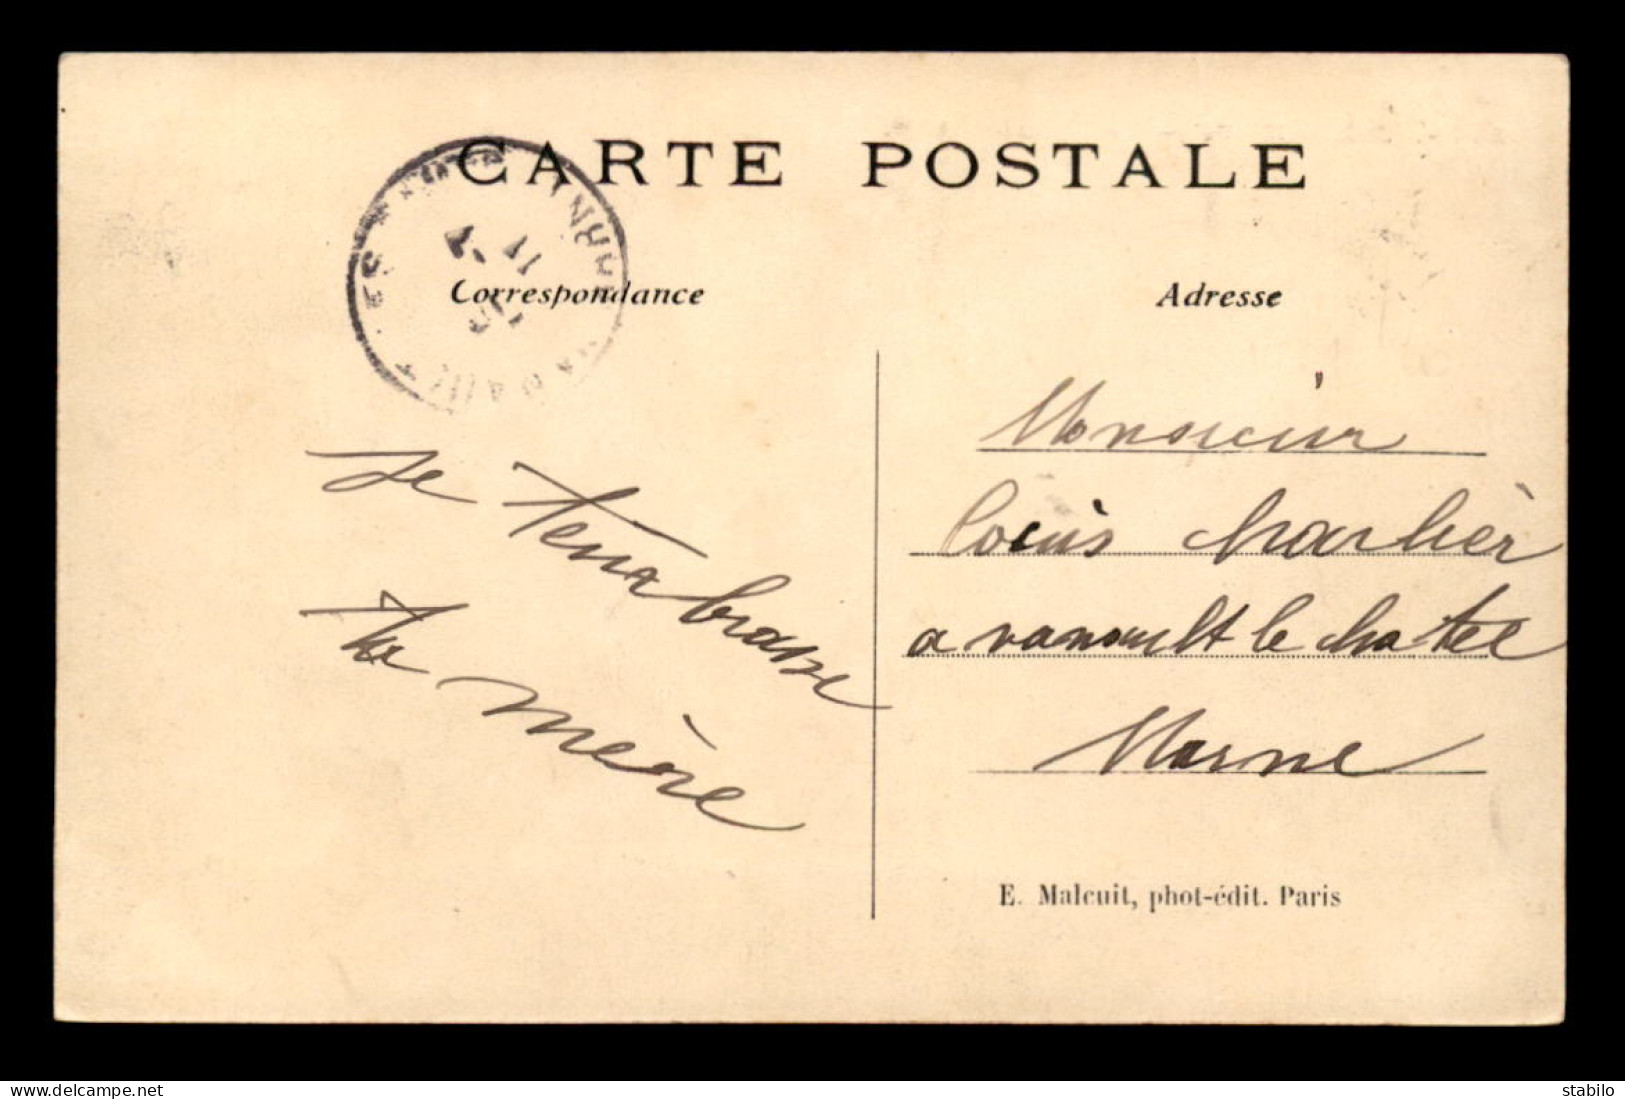 CARTE POSTALE
Correspondance
Adresse
Je tembrasse
ta mère
Monsieur
Louis charlier
a vanault le chatel
Marne
E. Malcuit, phot-édit. Paris
www.delcampe.net
stabilo